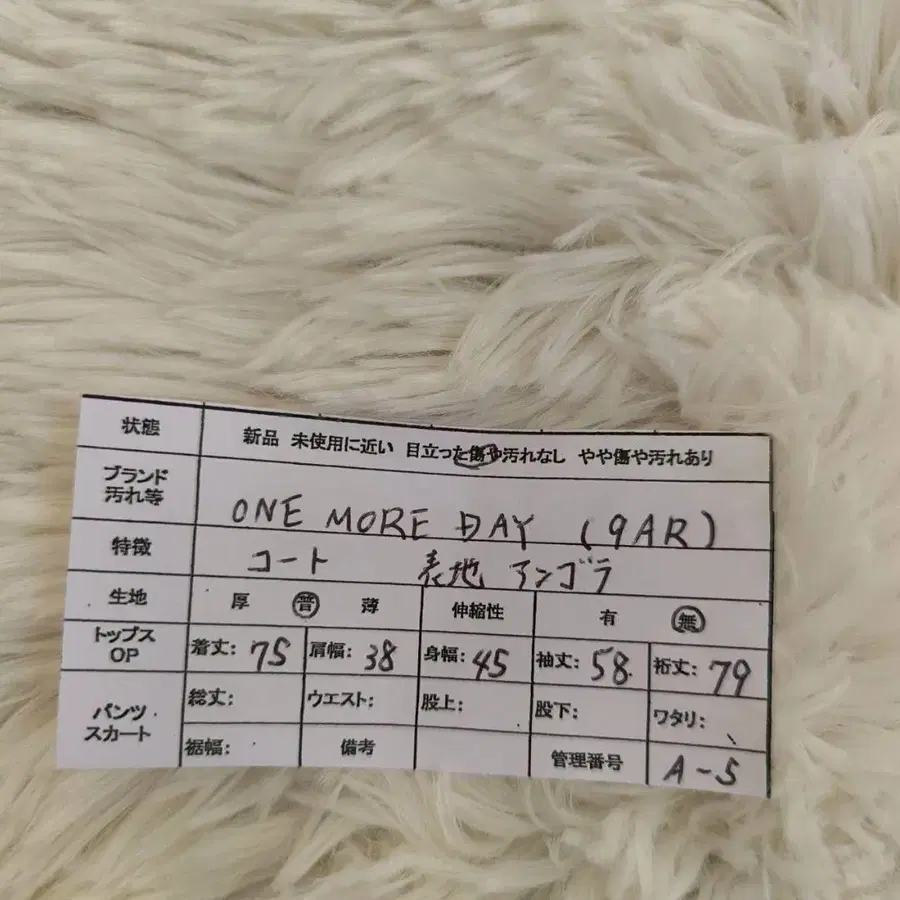 状態 新品 未使用に近い 目立った傷や汚れなし やや傷や汚れあり
ブランド
汚れ等 ONE MORE DAY (9AR)
特徴 コート 表地 アンゴラ
生地 厚 普 薄 伸縮性 有 無
トップス
OP 着丈: 75 肩幅: 38 身幅: 45 袖丈: 58. 裄丈: 79
パンツ
スカート 総丈: ウエスト: 股上: 股下: ワタリ:
裾幅: 備考 管理番号 A-5